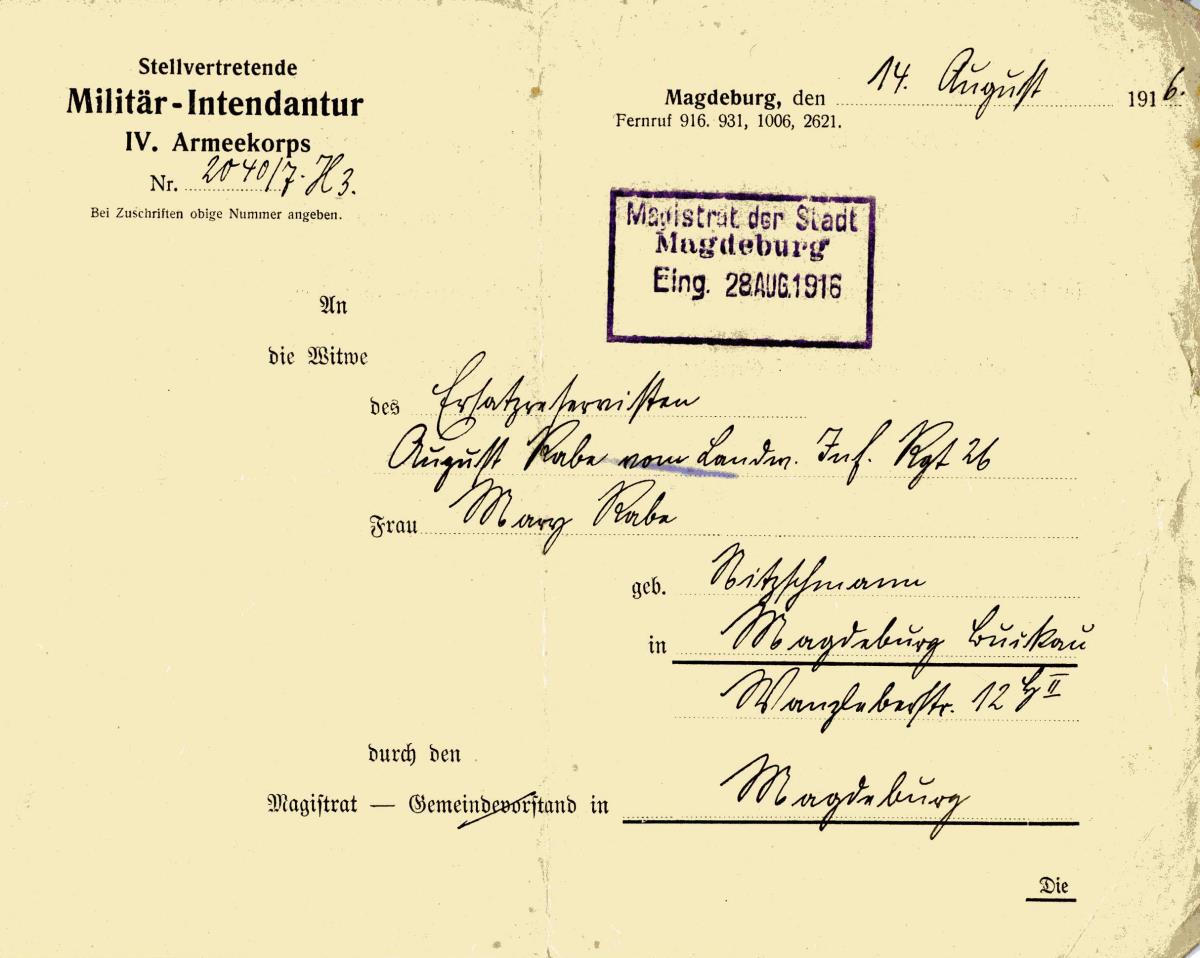 Stellvertretende
Militär-Intendantur
IV. Armeekorps
Nr. 2040/7. H 3.
Bei Zuschriften obige Nummer angeben.
Magdeburg, den 14. August 1916.
Fernruf 916. 931, 1006, 2621.
Magistrat der Stadt
Magdeburg
Eing. 28.AUG.1916
An
die Witwe
des Ersatzreservisten
August Rabe vom Landw. Inf. Rgt 26
Frau Mary Rabe
geb. Nitzschmann
in Magdeburg Buckau
Wanzleberstr. 12 II
durch den
Magistrat — Gemeindevorstand in Magdeburg
Die